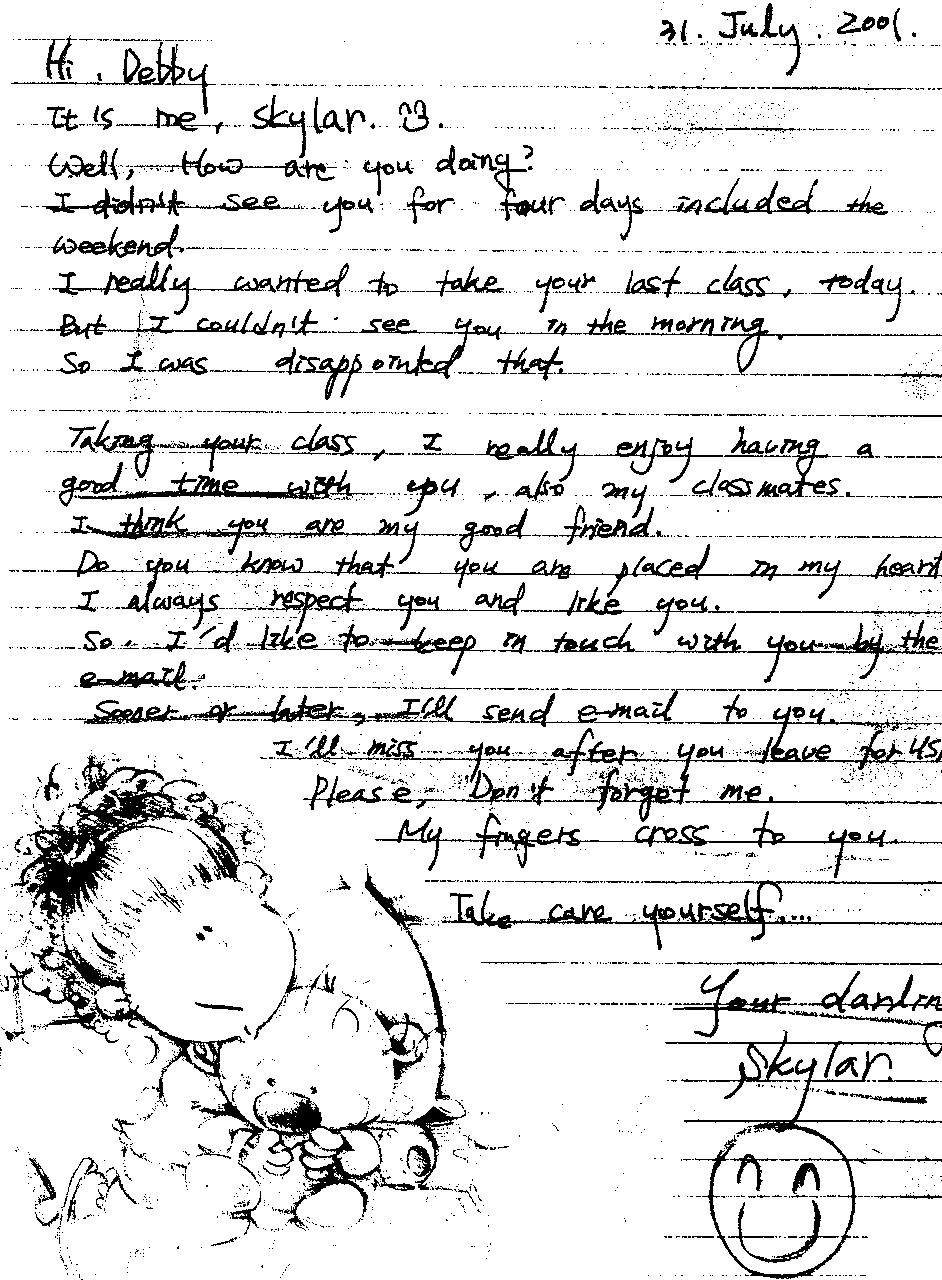 31. July. 2001.
Hi. Debby
It is me, skylar.
Well, How are you doing?
I didn't see you for four days included the
weekend.
I really wanted to take your last class, today.
But I couldn't see you in the morning.
So I was disappointed that.
Taking your class, I really enjoy having a
good time with you, also my classmates.
I think you are my good friend.
Do you know that you are placed in my heart
I always respect you and like you.
So. I'd like to keep in touch with you by the
e-mail.
Sooner or later, I'll send e-mail to you.
I'll miss you after you leave for USA
Please, Don't forget me.
My fingers cross to you.
Take care yourself....
Your darlin
skylar.